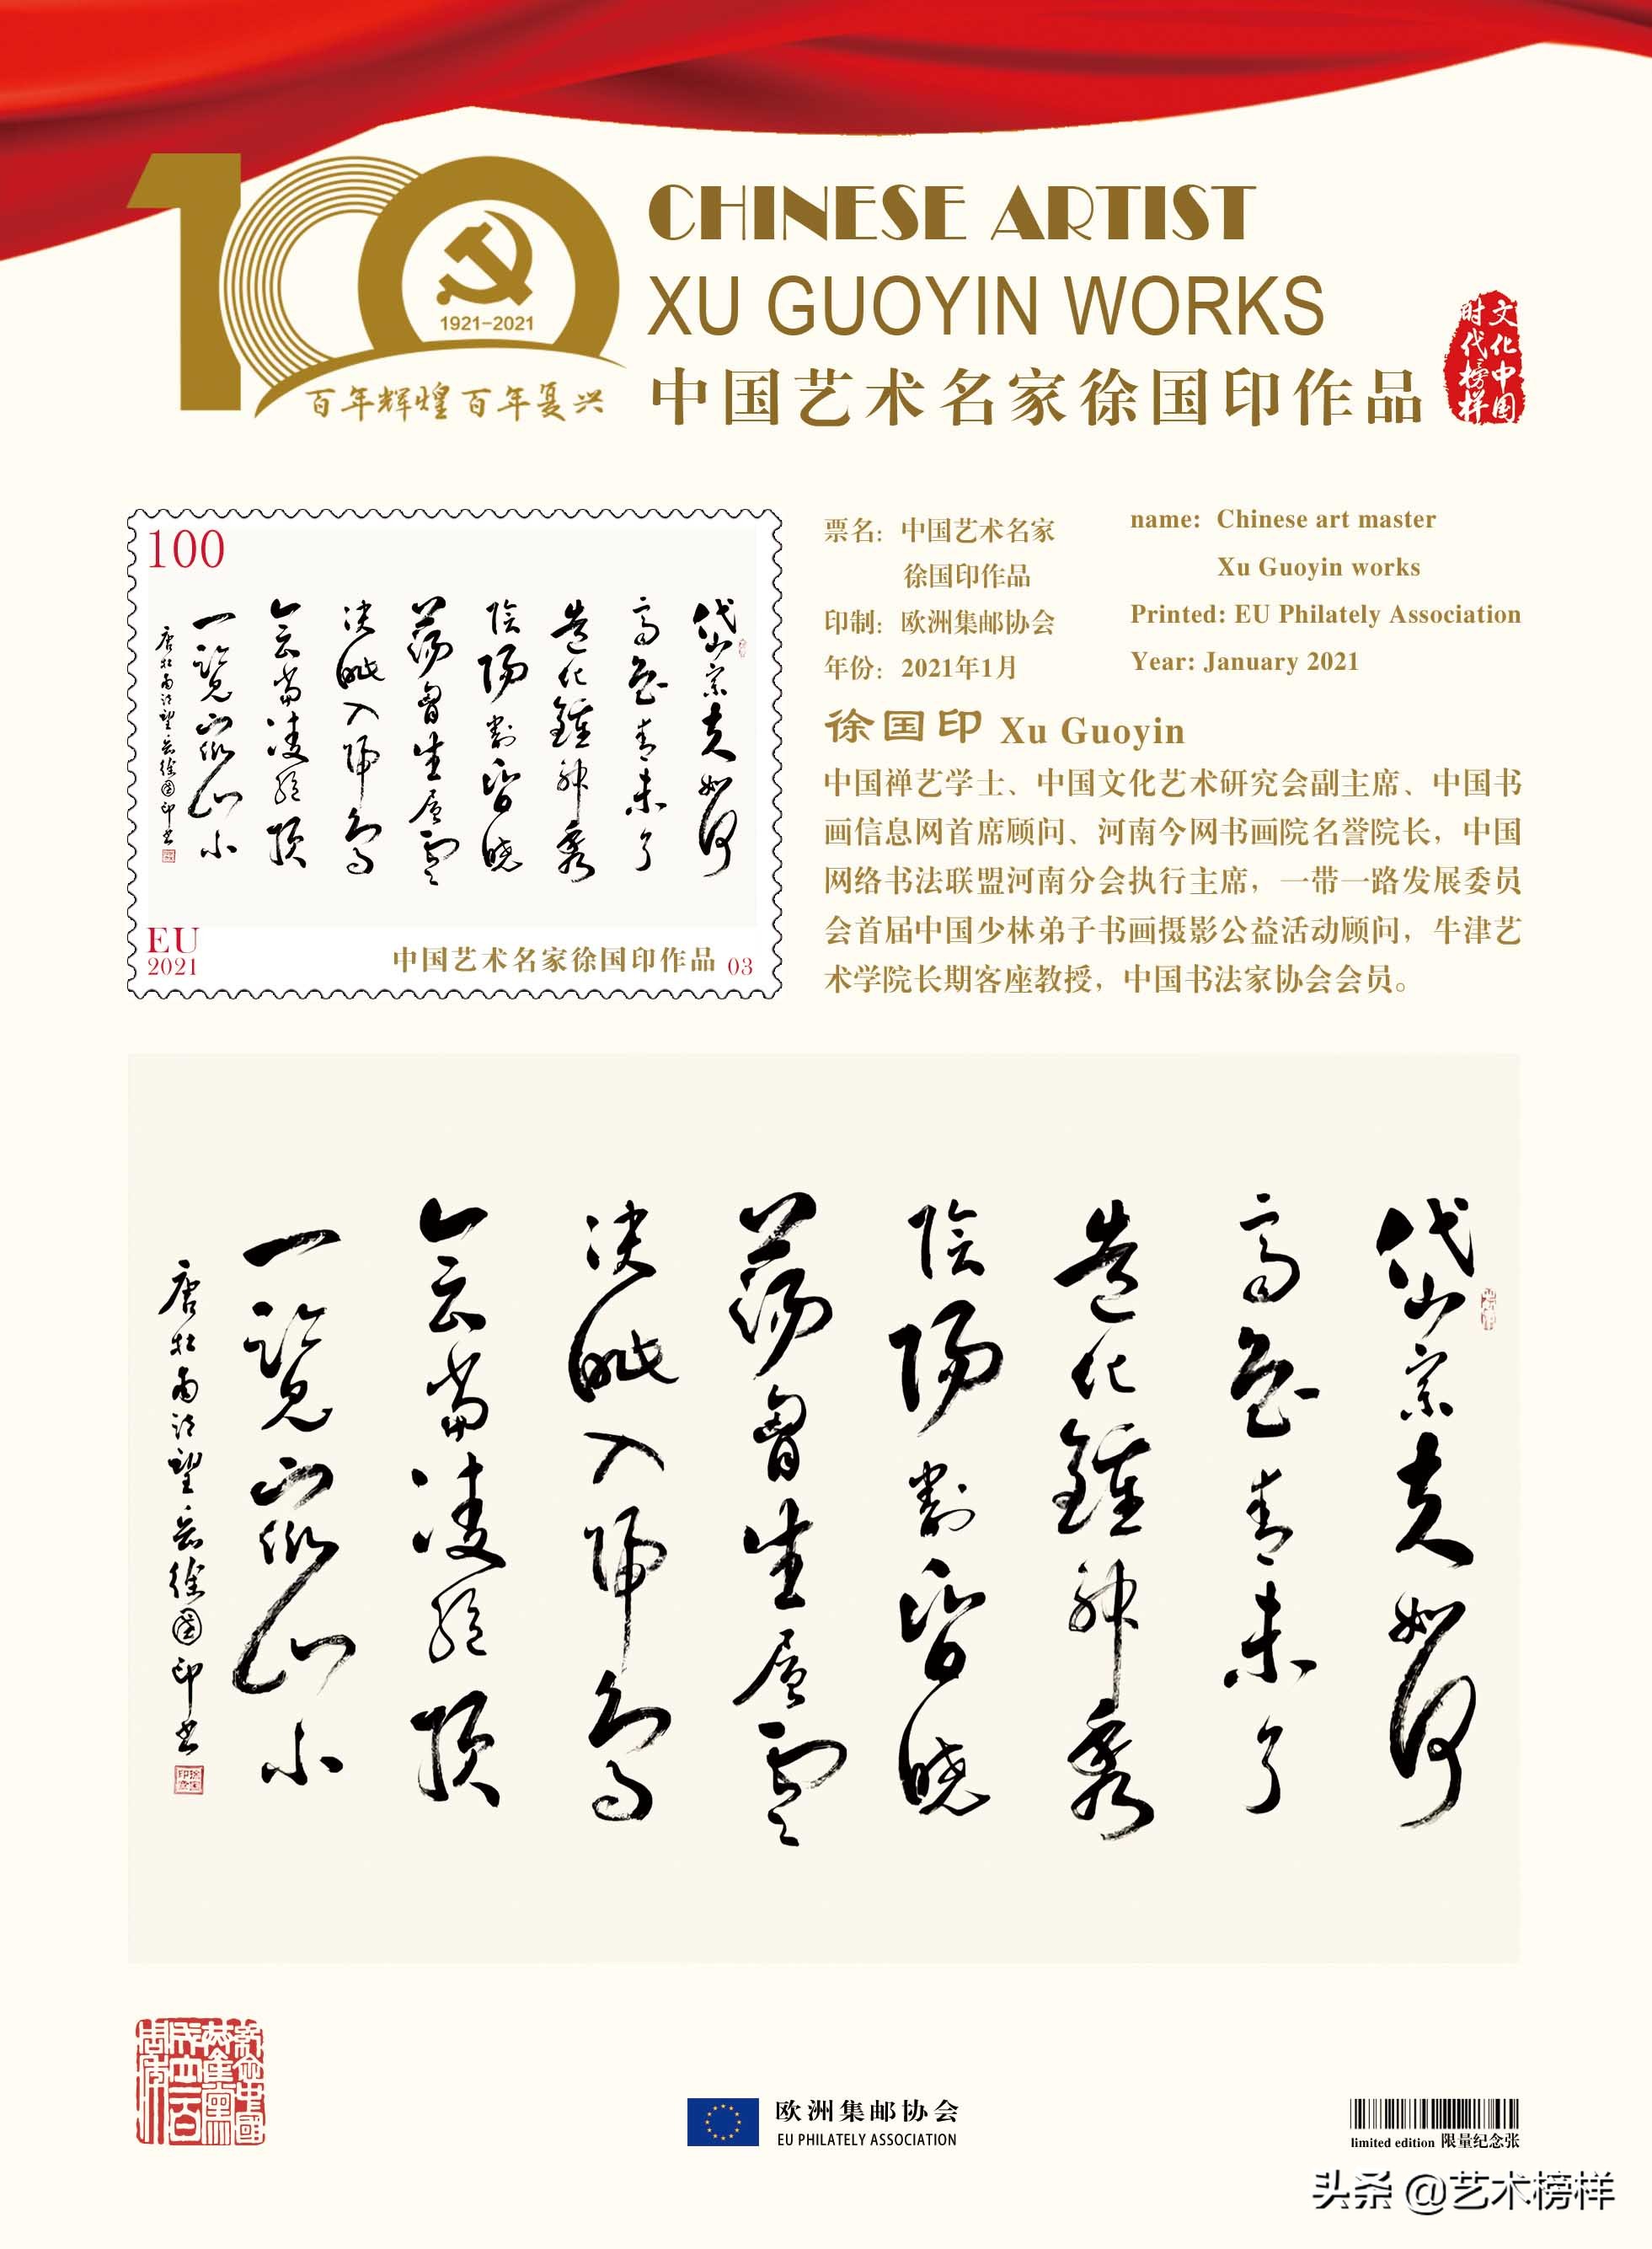 CHINESE ARTIST
XU GUOYIN WORKS
中国艺术名家徐国印作品
文化中国
时代榜样
1921-2021
百年辉煌 百年复兴
100
岱宗夫如何
齐鲁青未了
造化鍾神秀
陰陽割昏曉
荡胸生層雲
决眦入歸鸟
会當凌绝顶
一览众山小
唐杜甫诗望岳徐國印书
EU
2021
中国艺术名家徐国印作品 03
票名：中国艺术名家
徐国印作品
印制：欧洲集邮协会
年份：2021年1月
name: Chinese art master
Xu Guoyin works
Printed: EU Philately Association
Year: January 2021
徐国印 Xu Guoyin
中国禅艺学士、中国文化艺术研究会副主席、中国书
画信息网首席顾问、河南今网书画院名誉院长，中国
网络书法联盟河南分会执行主席，一带一路发展委员
会首届中国少林弟子书画摄影公益活动顾问，牛津艺
术学院长期客座教授，中国书法家协会会员。
岱宗夫如何
齐鲁青未了
造化鍾神秀
陰陽割昏曉
荡胸生層雲
决眦入歸鸟
会當凌绝顶
一览众山小
唐杜甫诗望岳徐國印书
欧洲集邮协会
EU PHILATELY ASSOCIATION
limited edition 限量纪念张
头条 @艺术榜样